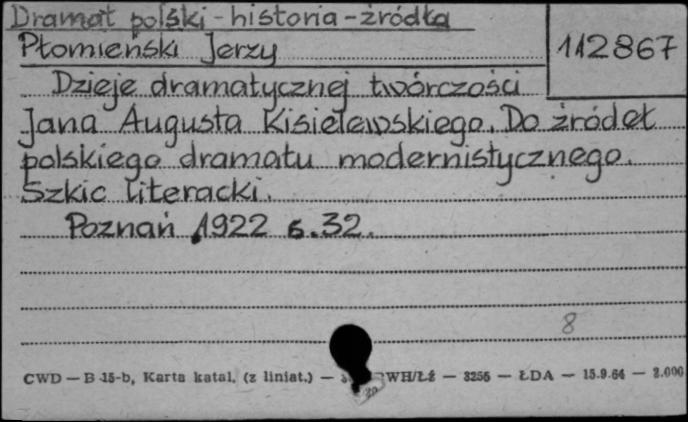 Dramat polski - historia - źródła
Płomieński Jerzy
112867
Dzieje dramatycznej twórczości
Jana Augusta Kisielewskiego. Do źródeł
polskiego dramatu modernistycznego.
Szkic literacki.
Poznań 1922 s. 32.
8
CWD — B 15-b, Karta katal. (z liniat.) — WH/Łź — 3256 — ŁDA — 15.9.64 — 2.000